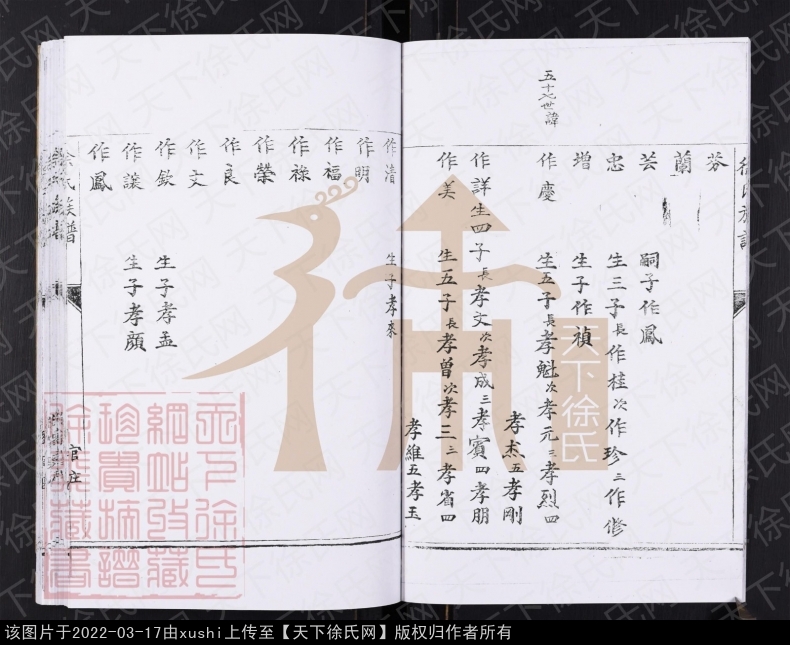 徐氏族譜
芬
蘭
芸 嗣子作鳳
忠 生三子長作桂次作珍三作修
增 生子作禎
五十七世諱
作慶 生五子長孝魁次孝元三孝烈四
孝杰五孝剛
作詳生四子長孝文次孝成三孝賓四孝朋
作美 生五子長孝曾次孝三三孝省四
孝維五孝玉
作清 生子孝來
作明
作福
作祿
作榮
作良
作文
作欽 生子孝孟
作讓 生子孝顏
作鳳
徐氏族譜
官庄
天下徐氏
天下徐氏网
该图片于2022-03-17由xushi上传至【天下徐氏网】版权归作者所有